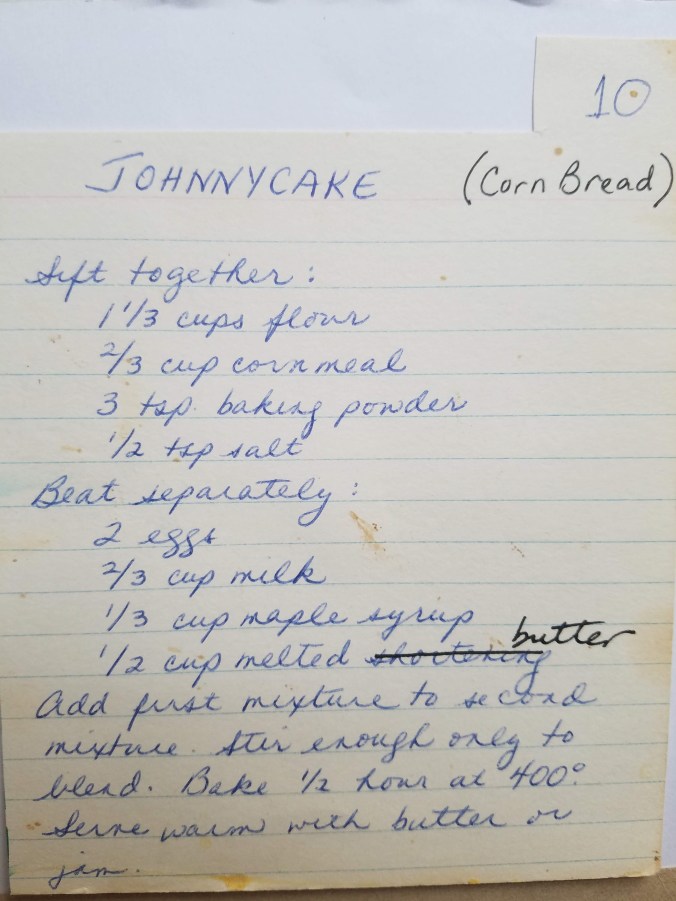 10
JOHNNYCAKE (Corn Bread)
Sift together:
1 1/3 cups flour
2/3 cup cornmeal
3 tsp. baking powder
1/2 tsp salt
Beat separately:
2 eggs
2/3 cup milk
1/3 cup maple syrup
1/2 cup melted shortening butter
Add first mixture to second
mixture. Stir enough only to
blend. Bake 1/2 hour at 400°.
Serve warm with butter or
jam.